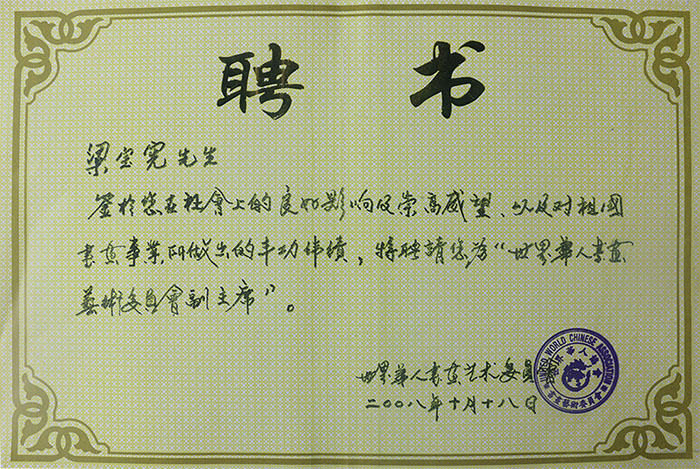 聘书
梁宝宪先生
鉴於您在社會上的良好影响及崇高威望、以及对祖國
書畫事業所做出的丰功偉績，特聘請您為“世界華人書畫
藝術委員會副主席”。
世界華人書畫艺术委員
二〇〇八年十月十八日
WORLD CHINESE ASSOCIATION
華人協會
書畫藝術委員會